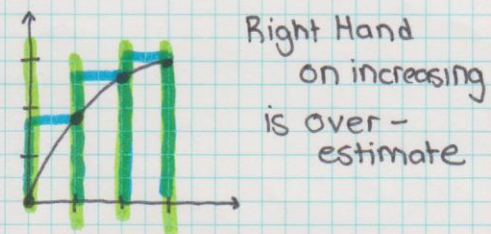 Right Hand
on increasing
is over-
estimate